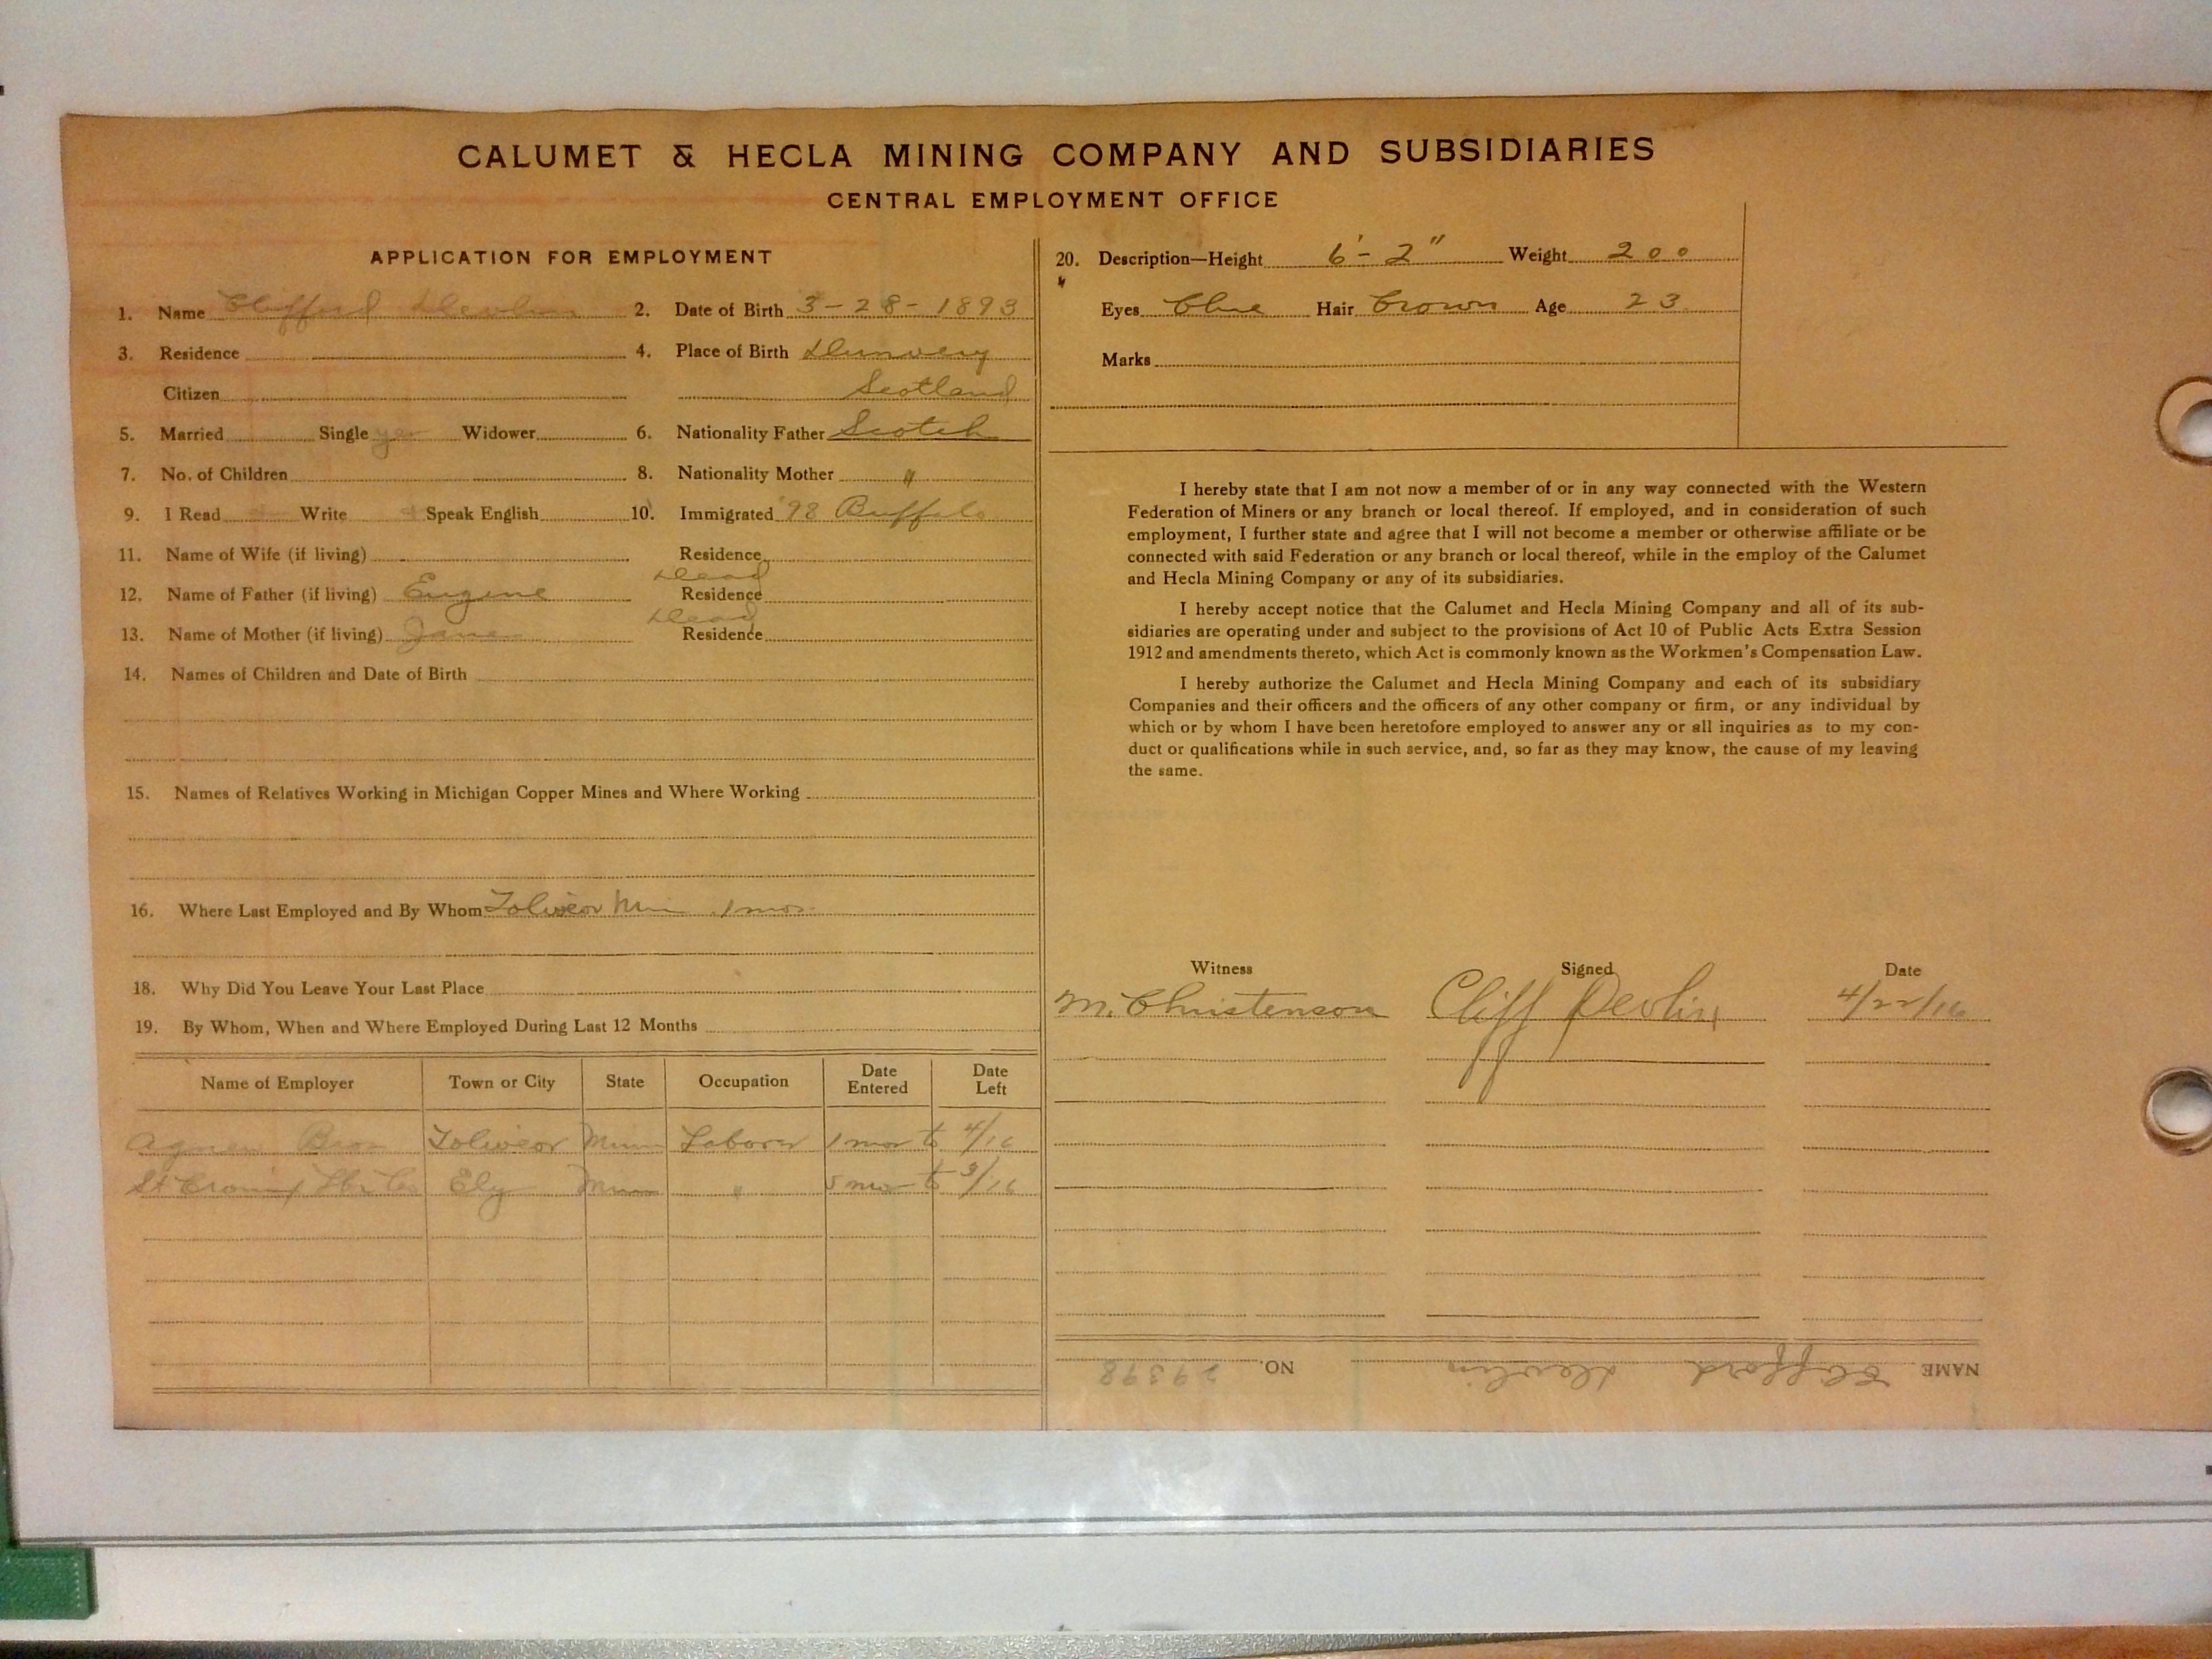 CALUMET & HECLA MINING COMPANY AND SUBSIDIARIES
CENTRAL EMPLOYMENT OFFICE
APPLICATION FOR EMPLOYMENT
1. Name Clifford Devlin 2. Date of Birth 3-28-1893
3. Residence 4. Place of Birth
Citizen Scotland
5. Married Single yes Widower 6. Nationality Father Scotch
7. No. of Children 8. Nationality Mother "
9. I Read Write Speak English 10. Immigrated '98 Buffalo
11. Name of Wife (if living) Residence
12. Name of Father (if living) Eugene Dead Residence
13. Name of Mother (if living) Jane Dead Residence
14. Names of Children and Date of Birth
15. Names of Relatives Working in Michigan Copper Mines and Where Working
16. Where Last Employed and By Whom Minn 1 mos
18. Why Did You Leave Your Last Place
19. By Whom, When and Where Employed During Last 12 Months
Name of Employer Town or City State Occupation Date Entered Date Left
Bros Minn Laborer 1 mos to 4/16
St Croix Lbr Co Ely Minn " 5 mos to 3/16
20. Description—Height 6'-2" Weight 200
Eyes blue Hair brown Age 23
Marks
I hereby state that I am not now a member of or in any way connected with the Western
Federation of Miners or any branch or local thereof. If employed, and in consideration of such
employment, I further state and agree that I will not become a member or otherwise affiliate or be
connected with said Federation or any branch or local thereof, while in the employ of the Calumet
and Hecla Mining Company or any of its subsidiaries.
I hereby accept notice that the Calumet and Hecla Mining Company and all of its sub-
sidiaries are operating under and subject to the provisions of Act 10 of Public Acts Extra Session
1912 and amendments thereto, which Act is commonly known as the Workmen's Compensation Law.
I hereby authorize the Calumet and Hecla Mining Company and each of its subsidiary
Companies and their officers and the officers of any other company or firm, or any individual by
which or by whom I have been heretofore employed to answer any or all inquiries as to my con-
duct or qualifications while in such service, and, so far as they may know, the cause of my leaving
the same.
Witness Signed Date
M. Christenson Cliff Devlin 4/22/16
NAME Clifford Devlin NO. 29398